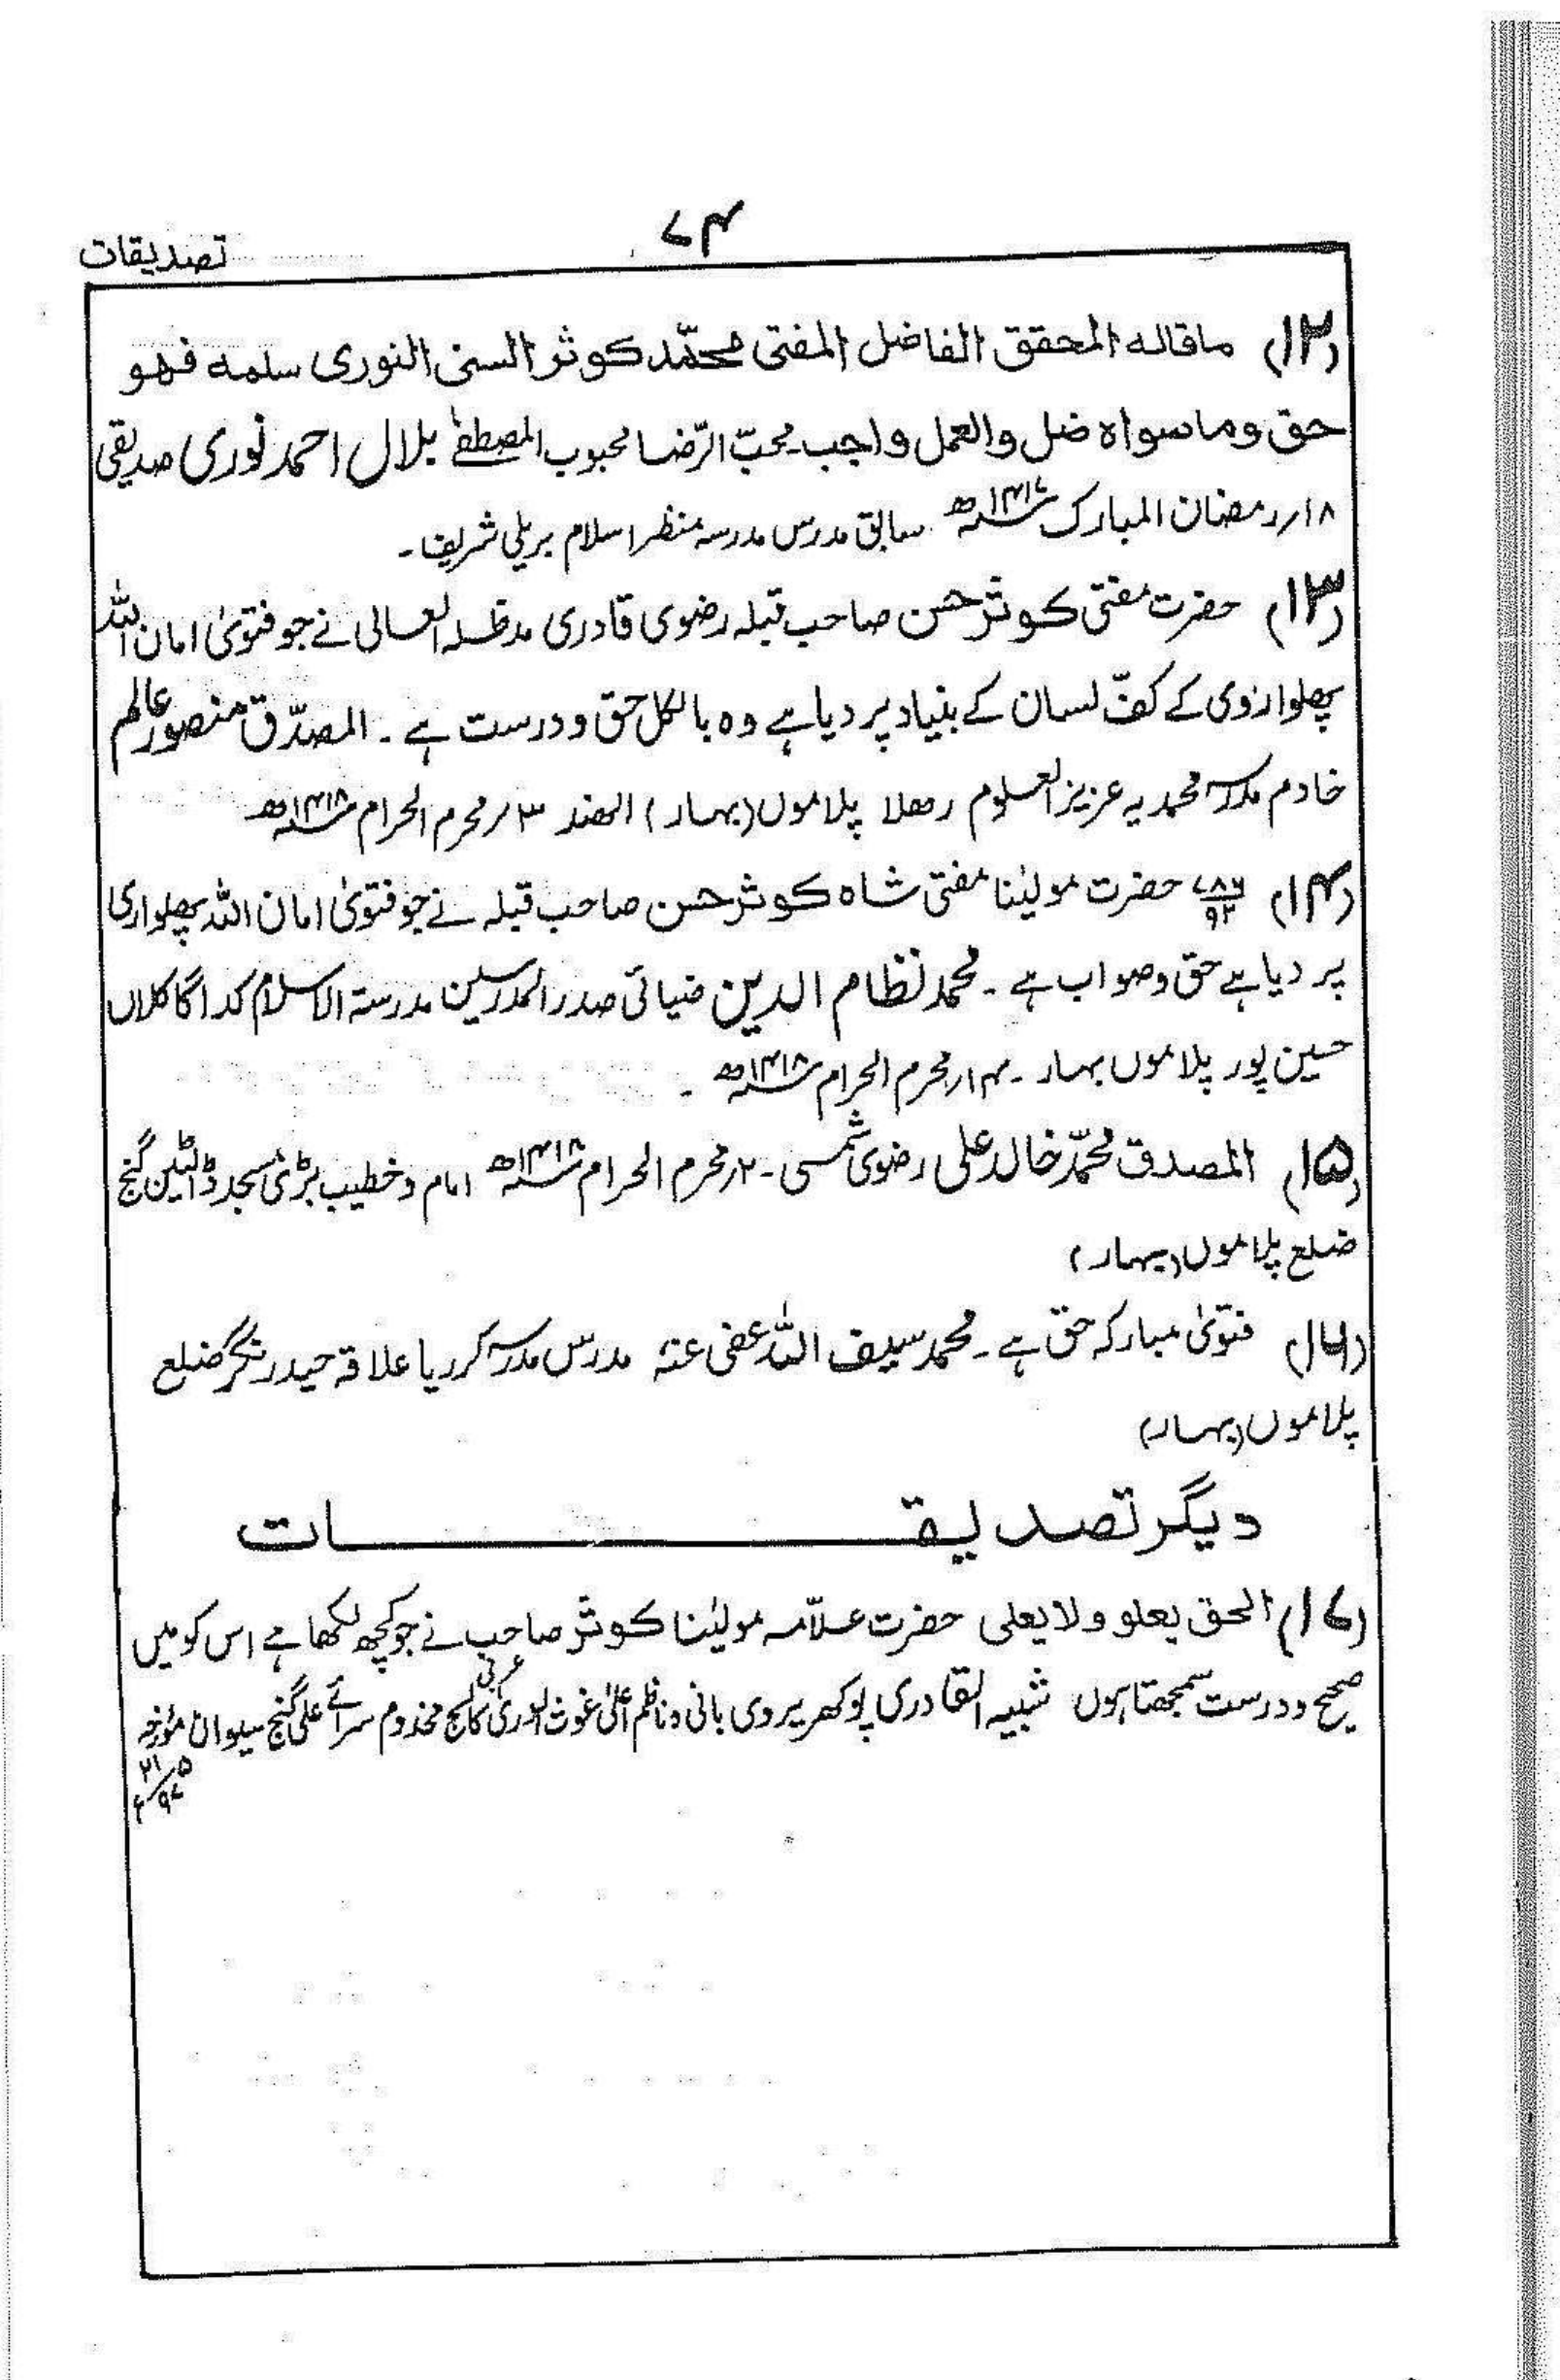 ۷۴
تصدیقات
(۱۲) ماقاله المحقق الفاضل المفتی محمّد کوثر السنی النوری سلمه فهو
حق وماسواه ضل والعمل واجب۔ محبّ الرّضا محبوب المصطفٰے بلال احمد نوری صدیقی
۱۸؍رمضان المبارک ۱۴۱۷ھ سابق مدرس مدرسہ منظر اسلام بریلی شریف۔
(۱۳) حضرت مفتی کوثر حسن صاحب قبلہ رضوی قادری مدظلہ العالی نے جو فتویٰ امان اللہ
پھلواروی کے کفّ لسان کے بنیاد پر دیا ہے وہ بالکل حق و درست ہے۔ المصدّق منصور عالم
خادم مدرسہ محمدیہ عزیز العلوم رھلا پلاموں (بہار) الھند ۳؍محرم الحرام ۱۴۱۸ھ
(۱۴) ۷۸۶/۹۲ حضرت مولیٰنا مفتی شاہ کوثر حسن صاحب قبلہ نے جو فتویٰ امان اللہ پھلواری
پر دیا ہے حق وصواب ہے۔ محمد نظام الدین ضیائی صدر المدرسین مدرستہ الاسلام کداگا کلاں
حسین پور پلاموں بہار۔ ۱۴؍محرم الحرام ۱۴۱۸ھ۔
(۱۵) المصدق محمّد خالد علی رضوی شمسی۔ ۲؍محرم الحرام ۱۴۱۸ھ امام وخطیب بڑی مسجد ڈالٹین گنج
ضلع پلاموں (بہار)
(۱۶) فتویٰ مبارکہ حق ہے۔ محمد سیف اللہ عفی عنہ مدرس مدرسہ کرریا علاقہ حیدر نگر ضلع
پلاموں (بہار)
دیگر تصدیقـــــــــات
(۱۷) الحق یعلو ولا یعلی حضرت علاّمہ مولیٰنا کوثر صاحب نے جو کچھ لکھا ہے اس کو میں
صحیح ودرست سمجھتا ہوں شبیہ القادری پوکھریروی بانی و ناظم اعلیٰ غوث الوریٰ عربی کالج مخدوم سرائے علی گنج سیوان مؤرخہ
۲۱/۵/۹۷ء